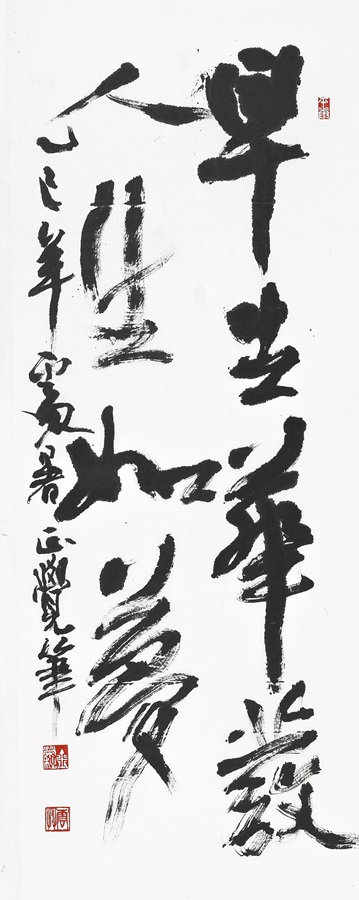 早生華髮
人生如夢
乙巳年處暑正覺筆